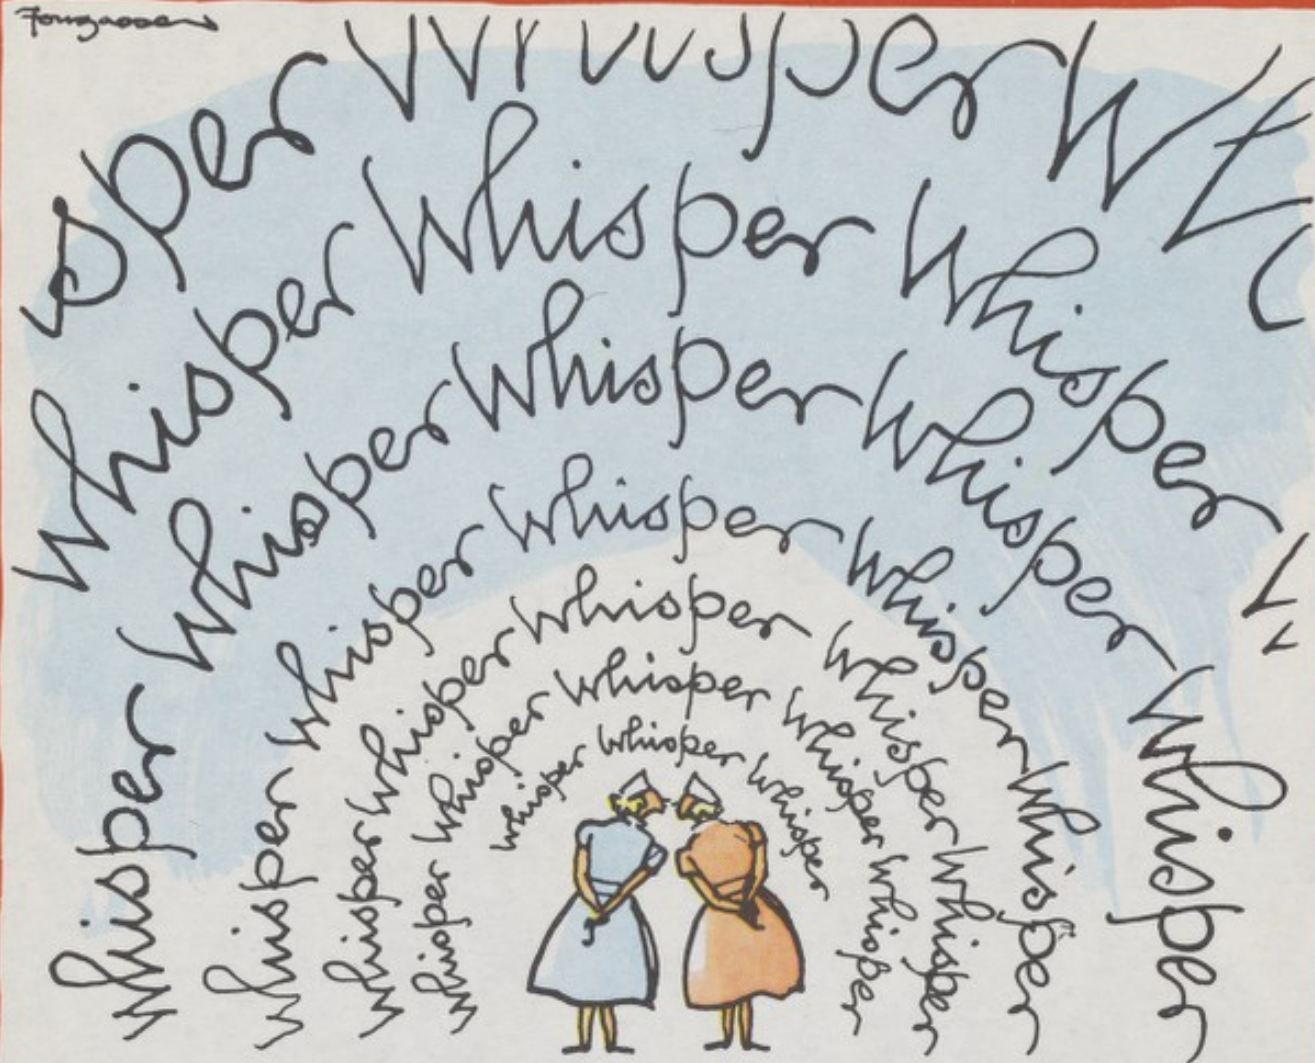 Fougasse
sper whisper wh
whisper whisper whisper w
whisper whisper whisper whisper whisper
whisper whisper whisper whisper whisper
whisper whisper whisper whisper whisper
whisper whisper whisper whisper whisper
whisper whisper whisper